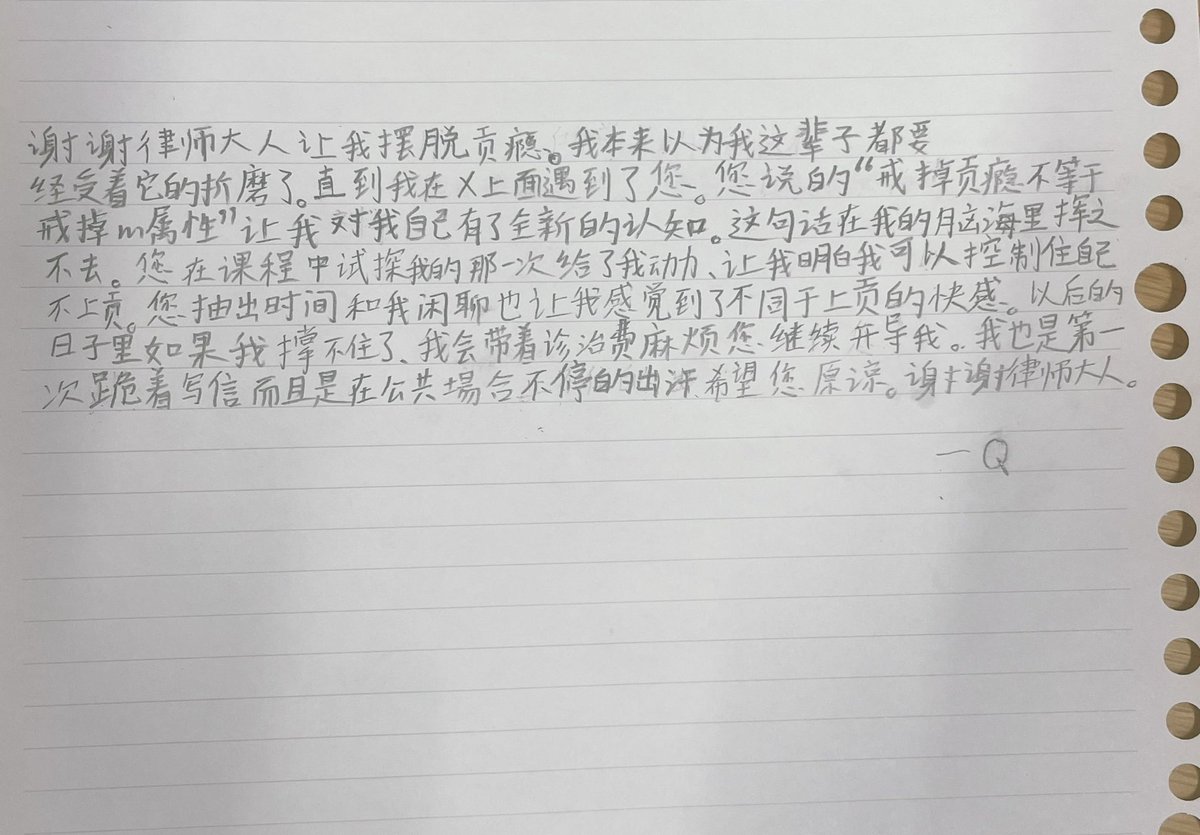 谢谢律师大人让我摆脱贡瘾。我本来以为我这辈子都要
经受着它的折磨了。直到我在X上面遇到了您。您说的“戒掉贡瘾不等于
戒掉m属性”让我对我自己有了全新的认知。这句话在我的脑海里挥之
不去。您在课程中试探我的那一次给了我动力、让我明白我可以控制住自己
不上贡。您抽出时间和我闲聊也让我感觉到了不同于上贡的快感。以后的
日子里如果我撑不住了、我会带着诊治费麻烦您继续开导我。我也是第一
次跪着写信而且是在公共場合不停的出汗希望您原谅。谢谢律师大人。
—Q